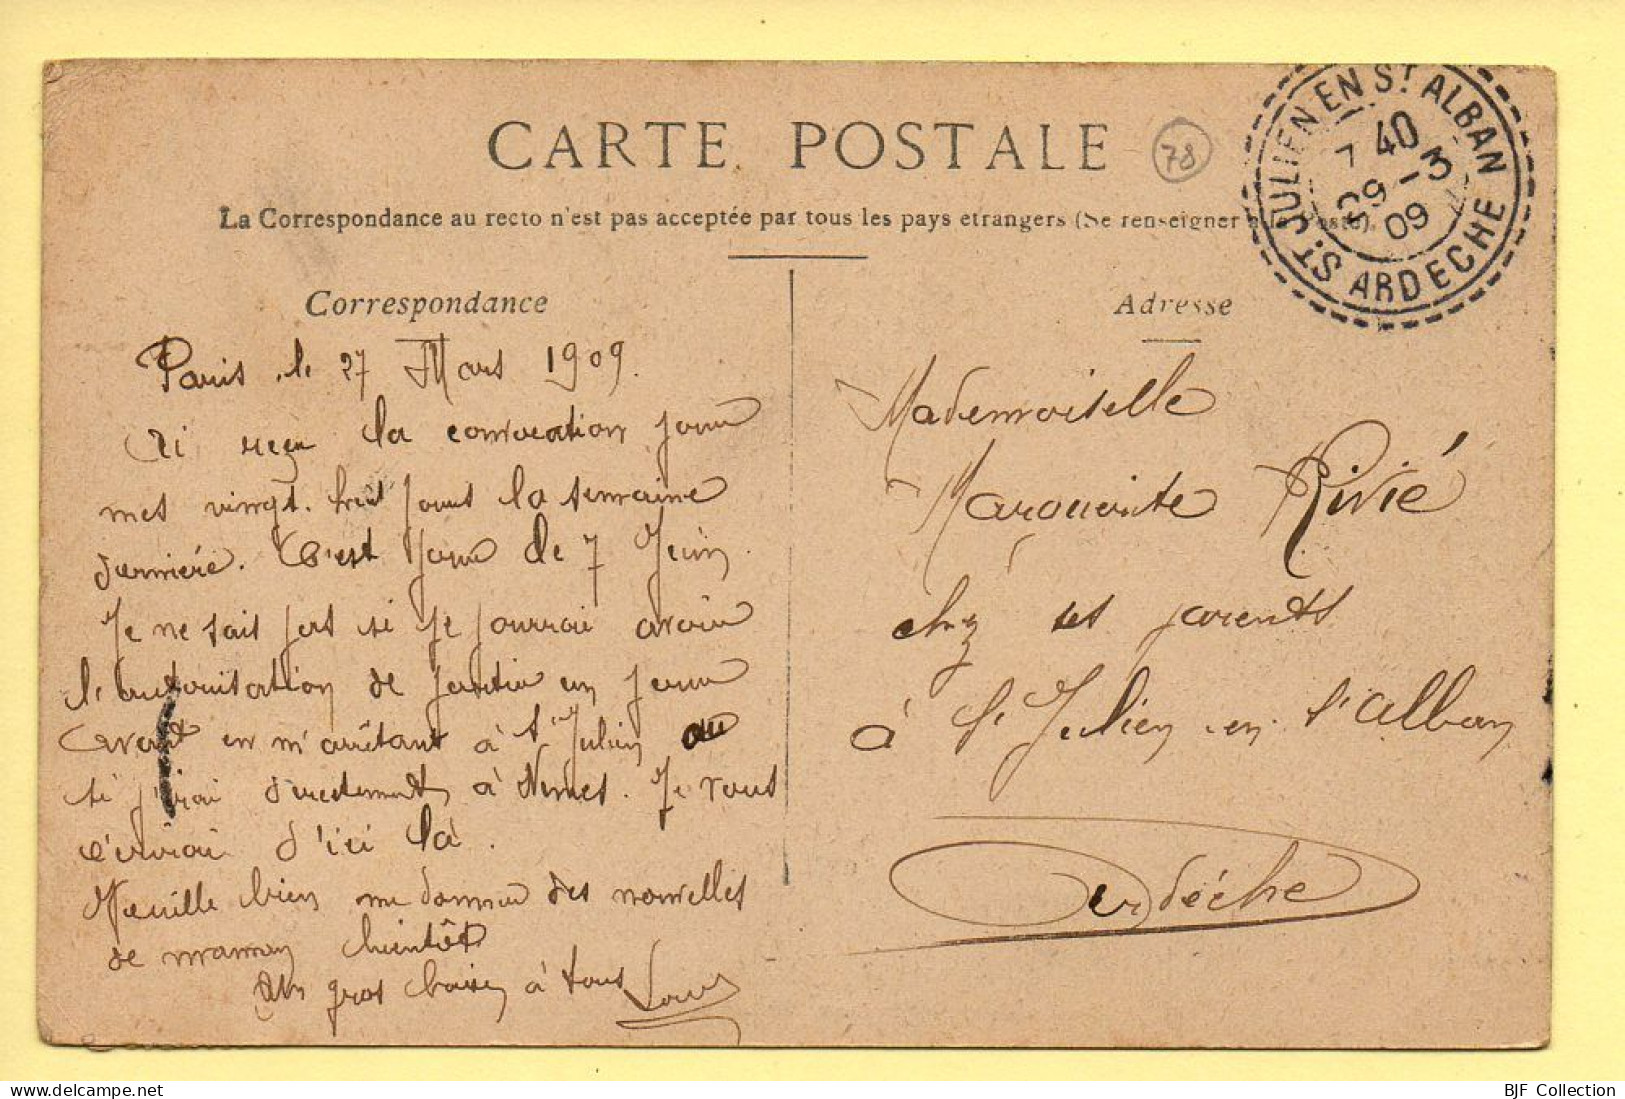 CARTE POSTALE
78
La Correspondance au recto n'est pas acceptée par tous les pays etrangers (Se renseigner à la Poste).
ST JULIEN EN ST ALBAN
7 40
29 - 3
09
ARDECHE
Correspondance
Paris le 27 Mars 1909.
Ai reçu la convocation pour
mes vingt-huit jours la semaine
dernière. C'est pour le 7 Juin.
Je ne sais pas si je pourrai avoir
l'autorisation de partir un jour
avant en m'arrêtant à St Julien ou
si j'irai directement à Nimes. Je vous
écrirai d'ici là.
Veuille bien me donner des nouvelles
de maman bientôt
Un gros baiser à tous Louis
Adresse
Mademoiselle
Marguerite Rivié
chez ses parents
à St Julien en St Alban
Ardèche
BJF Collection